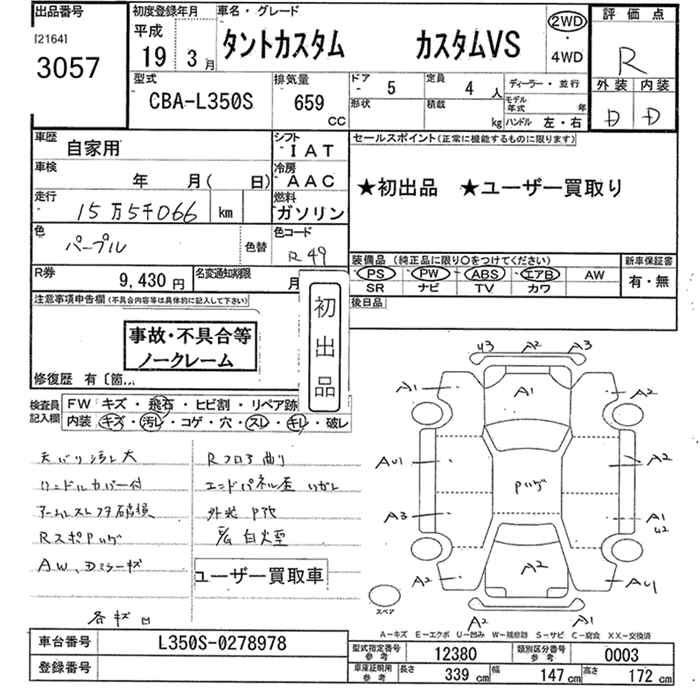 出品番号 初度登録年月 車名・グレード 評価点
[2164] 平成
3057 19 3月 タントカスタム カスタムVS 2WD・4WD R
型式 排気量 ドア 定員 ディーラー・並行 外装 内装
CBA-L350S 659 CC 5 4人 モデル年式 年 D D
形状 積載 kg ハンドル 左・右
車歴 自家用 シフト IAT セールスポイント(正常に機能するものに限ります)
車検 年 月( 日) 冷房 AAC ★初出品 ★ユーザー買取り
走行 15万5千066 km 燃料 ガソリン
色 パープル 色替 色コード R49
装備品(純正品に限り○をつけてください) 新車保証書
PS PW ABS エアB AW 有・無
SR ナビ TV カワ
R券 9,430円 名変通知期限 月
後日品
注意事項申告欄(不具合内容等は具体的に記入して下さい)
初出品
事故・不具合等
ノークレーム
修復歴 有〔箇
検査員記入欄 FW キズ・飛石・ヒビ割・リペア跡
内装 キズ・汚レ・コゲ・穴・スレ・キレ・破レ
天バリ汚レ大 Rフロア曲り
ハンドルカバー付
Rスポ
ユーザー買取車
各キズ凹
U3 A2 A3
A1 A1 A2
AU1 A2
A3 A1 U2
A2 A2 AU1
スペア A2 A1
A-キズ E-エクボ U-凹み W-補修跡 S-サビ C-腐食 XX-交換済
車台番号 L350S-0278978 型式指定番号 参考 12380 類別区分番号 参考 0003
登録番号 車庫証明用 参考 長さ 339 cm 幅 147 cm 高さ 172 cm